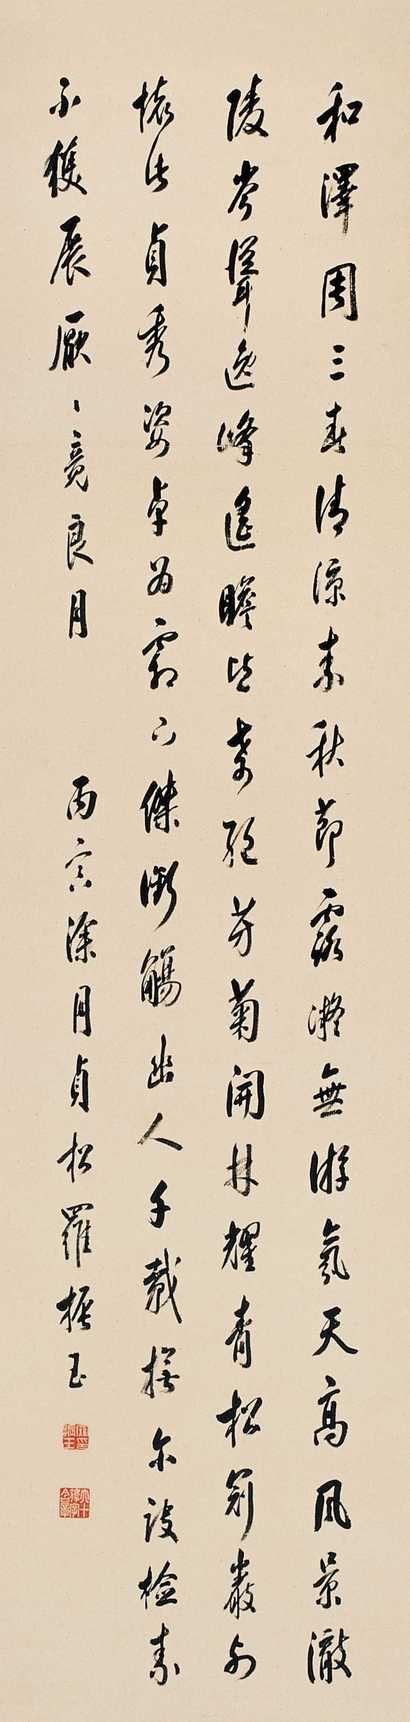 和澤周三春清涼素秋節露凝無游氛天高風景澈
陵岑聳逸峰遙瞻皆奇絕芳菊開林耀青松冠巖列
懷此貞秀姿卓為霜下傑銜觴幽人千載撫爾訣檢素
不獲展厭〻竟良月
丙寅涂月貞松羅振玉